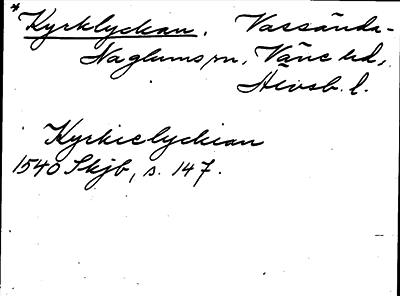 *Kyrklyckan. Vassända-
Naglums sn, Väne hd,
Älvsb. l.
Kyrkielyckian
1540 Skjb, s. 147.